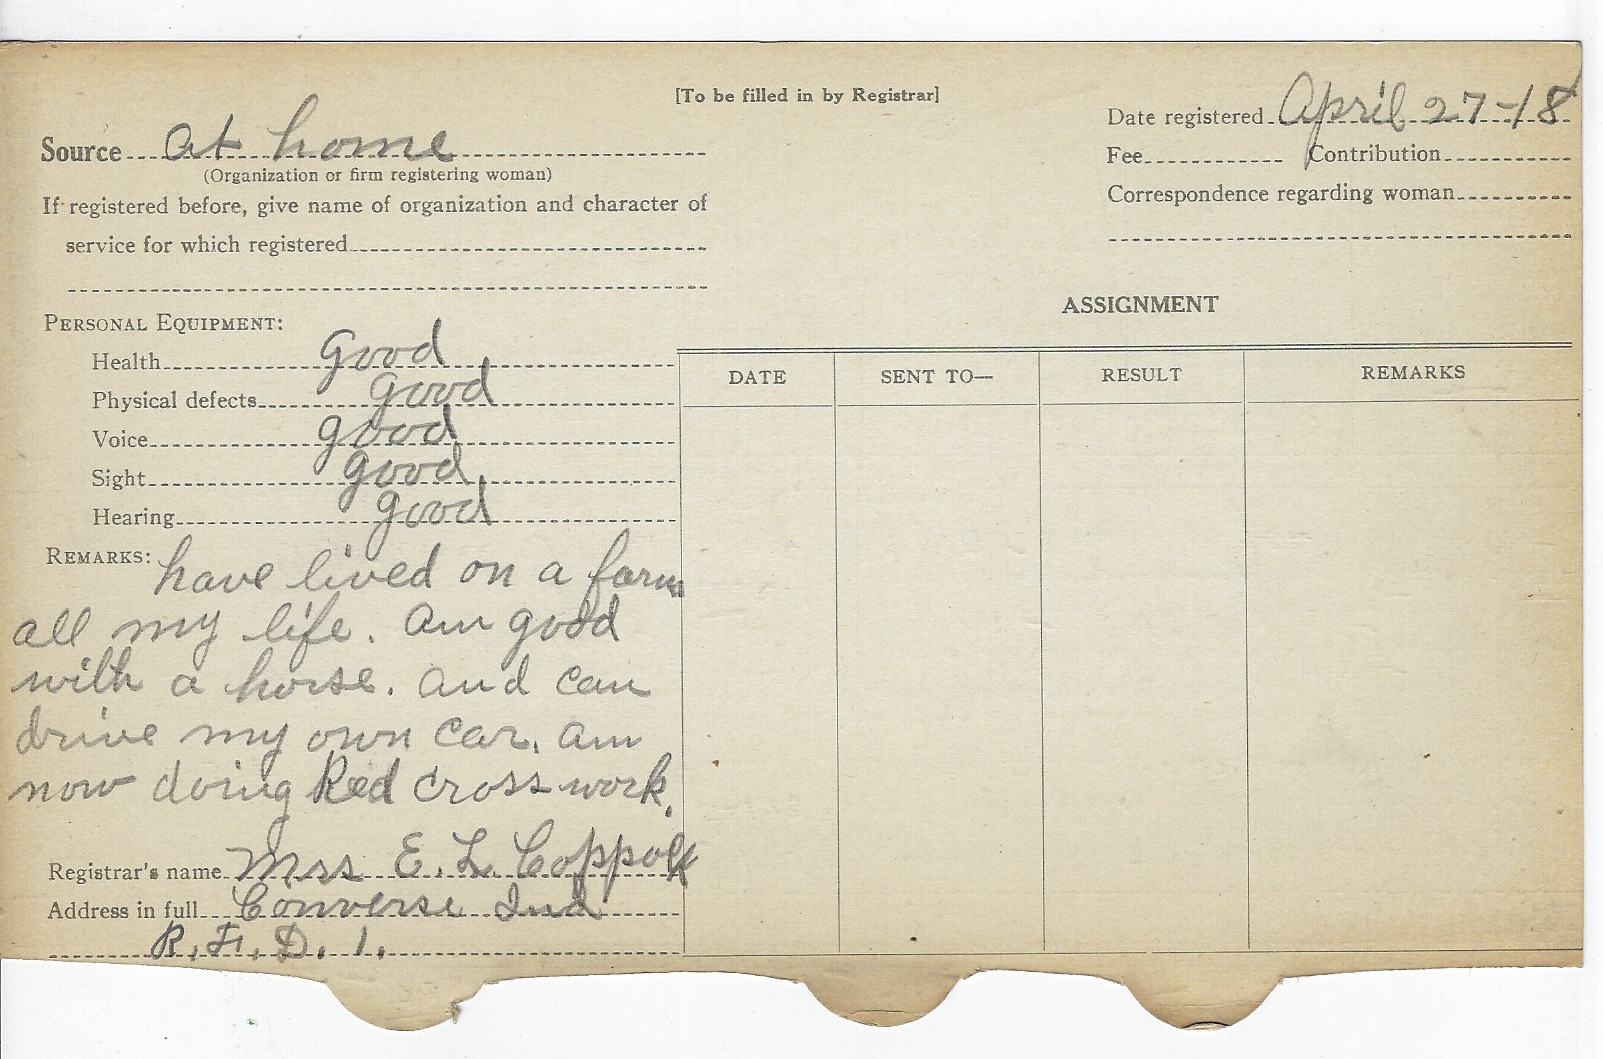 [To be filled in by Registrar]
Date registered April 27-18
Source At home
(Organization or firm registering woman)
Fee Contribution
If registered before, give name of organization and character of
service for which registered
Correspondence regarding woman
PERSONAL EQUIPMENT:
Health good
Physical defects good
Voice good
Sight good
Hearing good
ASSIGNMENT
DATE SENT TO— RESULT REMARKS
REMARKS: have lived on a farm
all my life. am good
with a horse. and can
drive my own car. am
now doing Red Cross work.
Registrar's name Mrs E. L. Coppock
Address in full Converse Ind
R. F. D. 1.